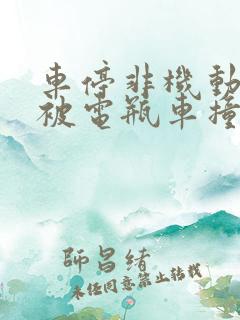 車停非機動
被電瓶車撞
師昌緒
未经同意禁止转载